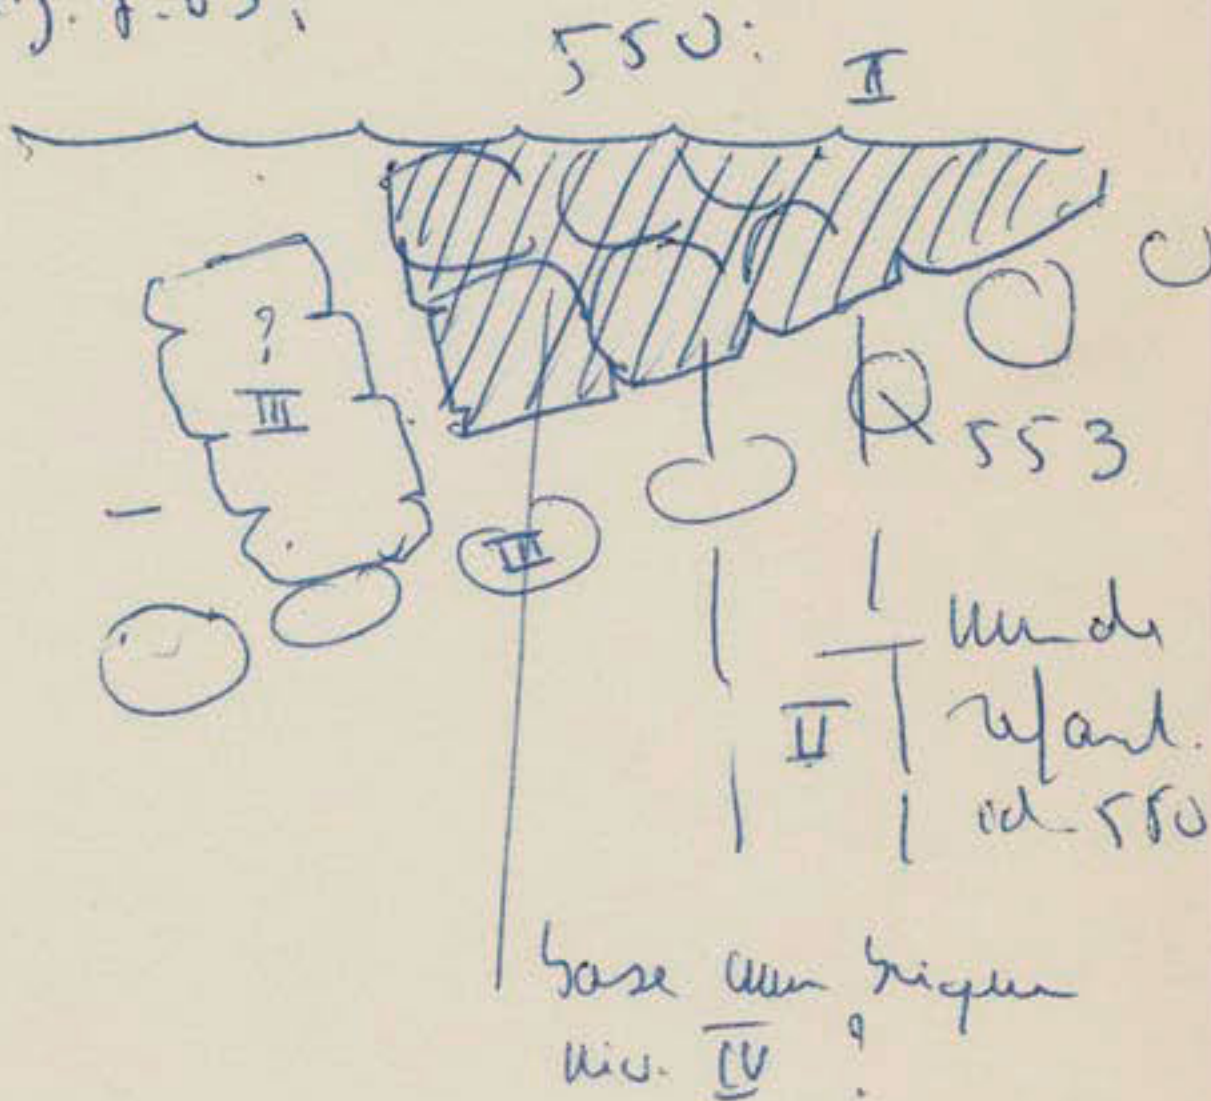 550:
II
?
III
553
III
mur de
refand.
II
id 550
base mur briques
niv. IV ?